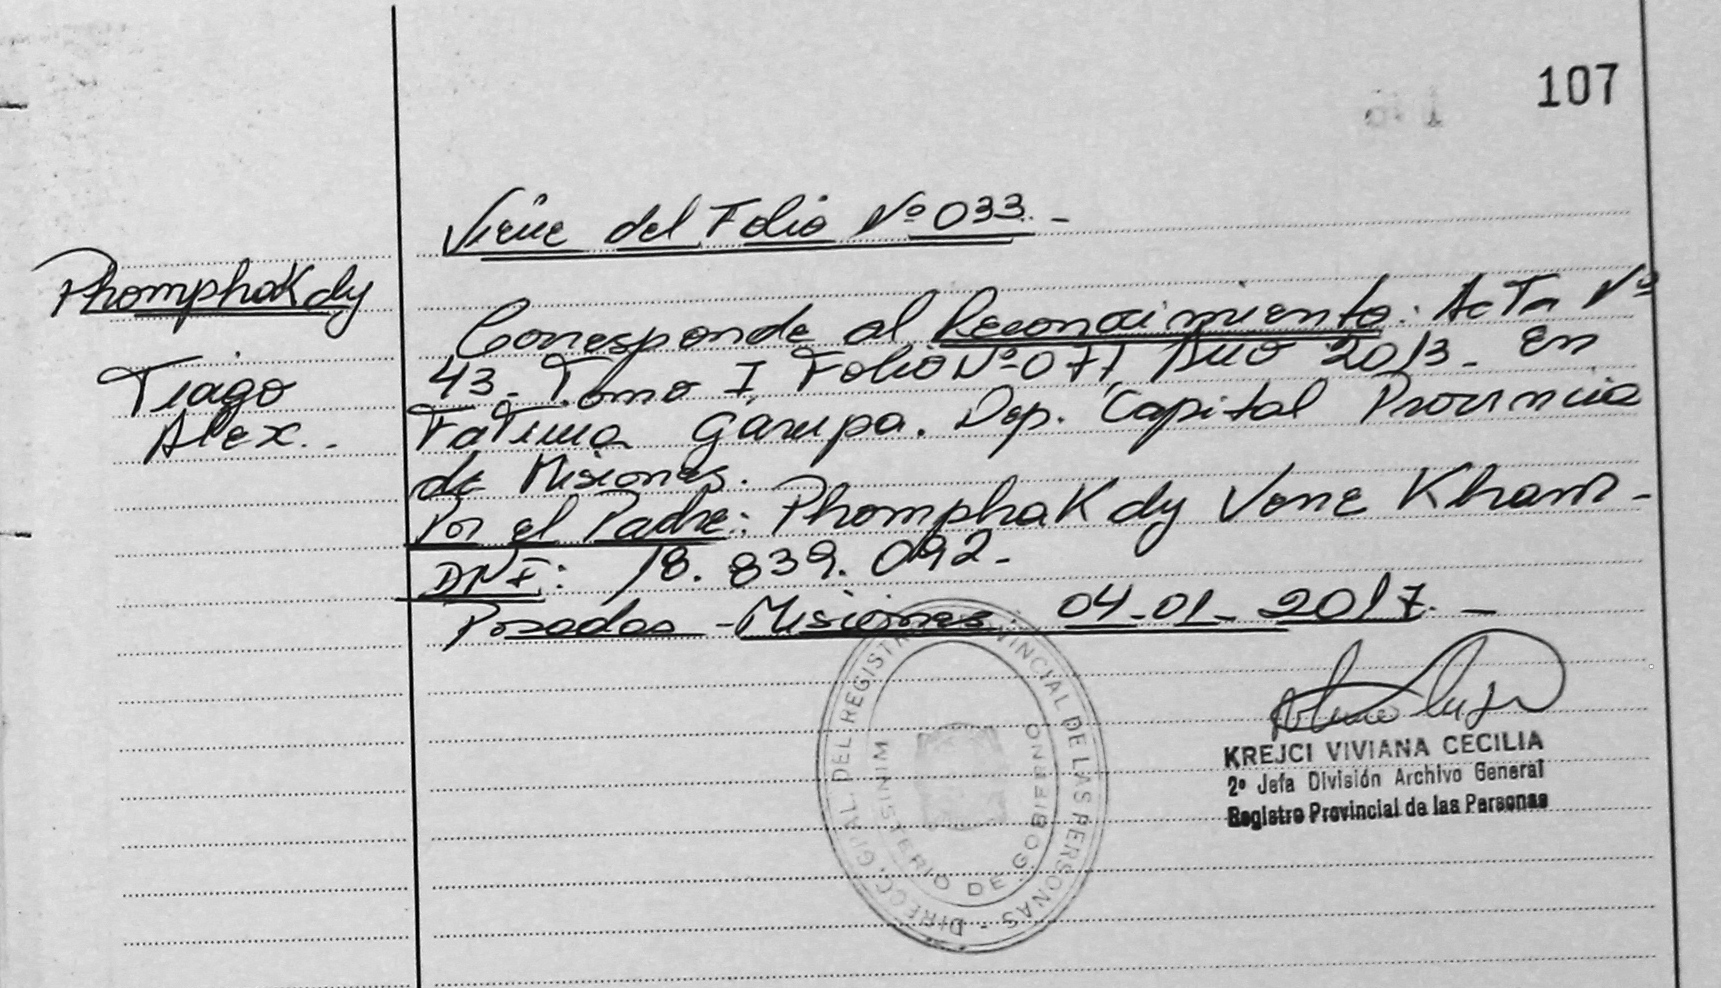 107
Viene del Folio Nº 033.-
Phomphakdy
Tiago
Alex.-
Corresponde al Reconocimiento. Acta Nº
43- Tomo I, Folio Nº 071 Año 2013- En
Fatima Garupa. Dep. Capital Provincia
de Misiones.
Por el Padre: Phomphakdy Vone Kham-
DNI: 18.839.092-
Posadas - Misiones 04-01-2017.-
DIRECC. GRAL. DEL REGISTRO PROVINCIAL DE LAS PERSONAS -
MINISTERIO DE GOBIERNO
KREJCI VIVIANA CECILIA
2º Jefa División Archivo General
Registro Provincial de las Personas